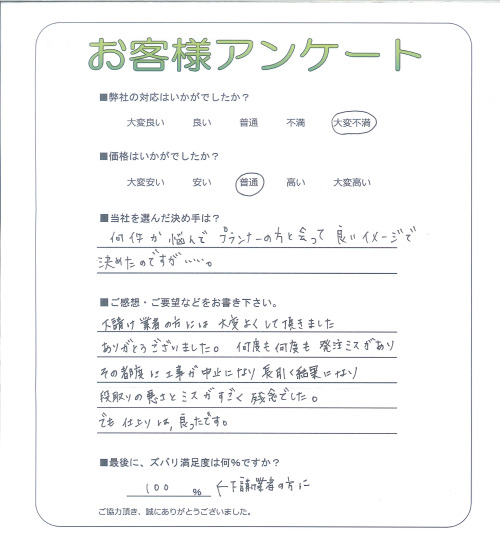 お客様アンケート
■弊社の対応はいかがでしたか？
大変良い 良い 普通 不満 大変不満
■価格はいかがでしたか？
大変安い 安い 普通 高い 大変高い
■当社を選んだ決め手は？
何件か悩んで プランナーの方と会って 良いイメージで
決めたのですが……。
■ご感想・ご要望などをお書き下さい。
下請け業者の方には 大変よくして頂きました
ありがとうございました。 何度も何度も 発注ミスがあり
その都度に工事が中止になり 長引く結果になり
段取りの悪さとミスがすごく 残念でした。
でも 仕上りは、良ったです。
■最後に、ズバリ満足度は何%ですか？
100 % ←下請業者の方に
ご協力頂き、誠にありがとうございました。